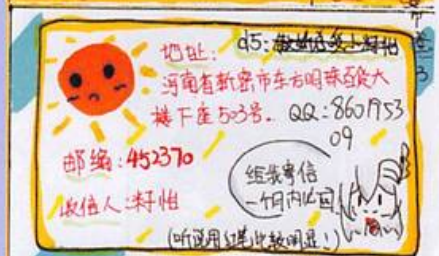 地址:
d5:
河南省新密市东方明珠百货大
楼下座503号. QQ:8601953
09
邮编:452370
收信人:籽怡
给我寄信
一个月内必回
(听说用红笔比较明显!)